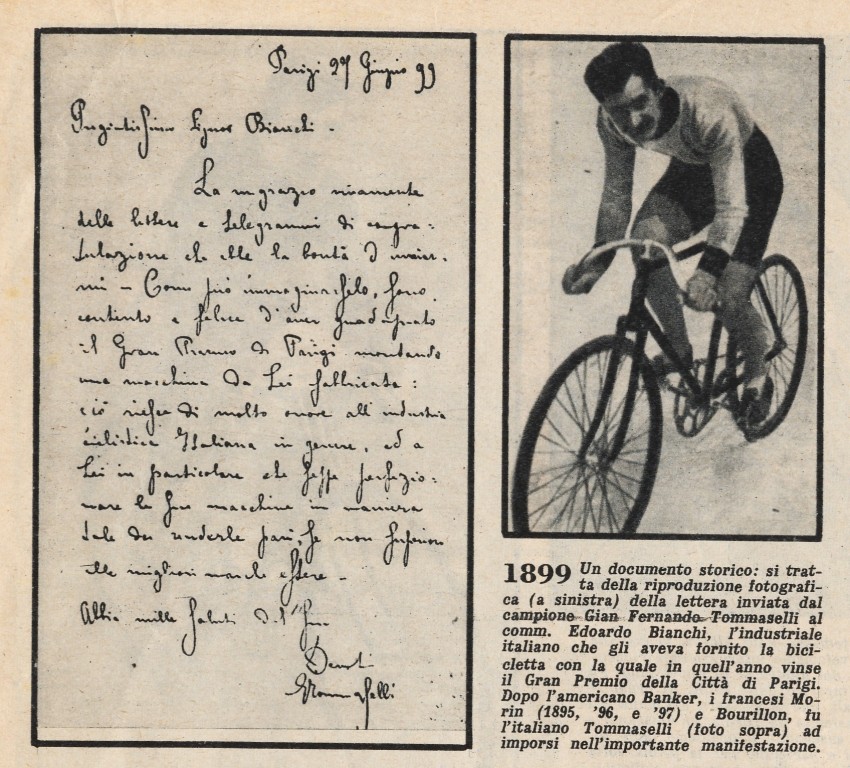 Parigi 27 Giugno 99
Pregiatissimo Signor Bianchi.
La ringrazio vivamente
delle lettere e telegrammi di congra-
tulazione che ebbe la bontà d'inviar-
mi - Come può immaginarselo, sono
contento e felice d'aver guadagnato
il Gran Premio di Parigi montando
una macchina da Lei fabbricata:
ciò riesce di molto onore all'industria
ciclistica Italiana in genere, ed a
Lei in particolare che seppe perfezio-
nare le sue macchine in maniera
tale da renderle pari, se non superiori
alle migliori marche estere -
Abbia mille saluti dal Suo
Devot
GTommaselli
1899 Un documento storico: si trat-
ta della riproduzione fotografi-
ca (a sinistra) della lettera inviata dal
campione Gian Fernando Tommaselli al
comm. Edoardo Bianchi, l'industriale
italiano che gli aveva fornito la bici-
cletta con la quale in quell'anno vinse
il Gran Premio della Città di Parigi.
Dopo l'americano Banker, i francesi Mo-
rin (1895, '96, e '97) e Bourillon, fu
l'italiano Tommaselli (foto sopra) ad
imporsi nell'importante manifestazione.